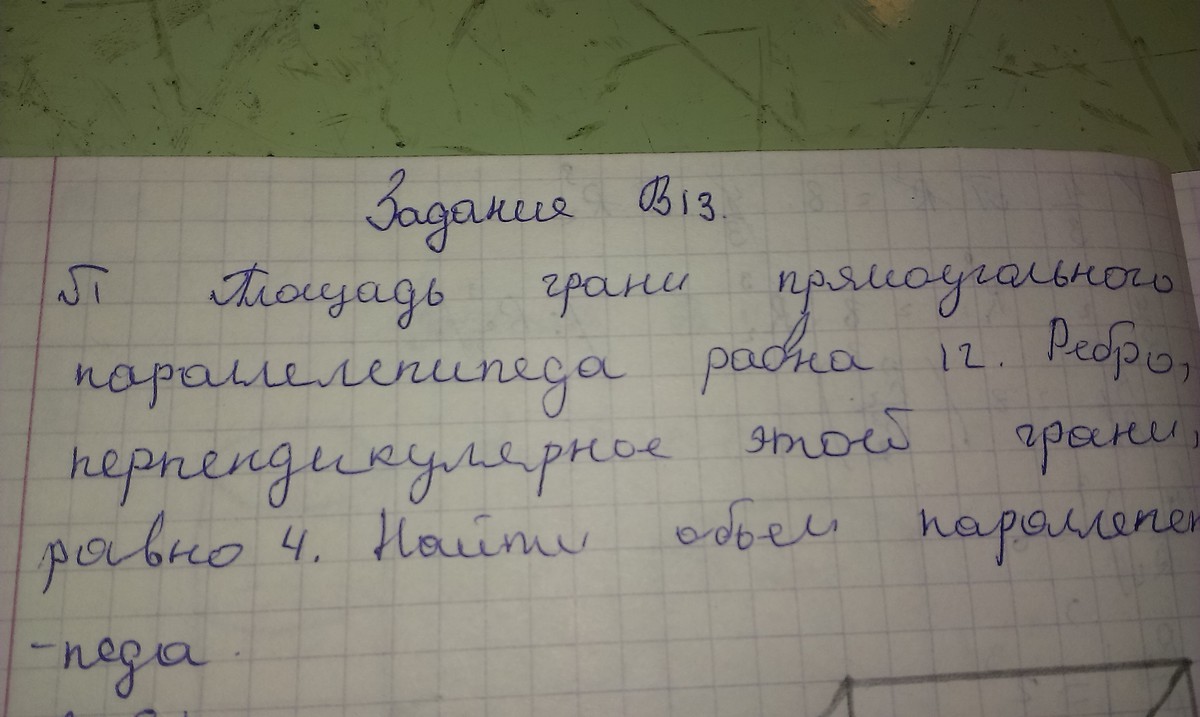 Задания B13.
√1 Площадь грани прямоугольного
параллелепипеда равна 12. Ребро,
перпендикулярное этой грани,
равно 4. Найти обьем параллепе
-педа.